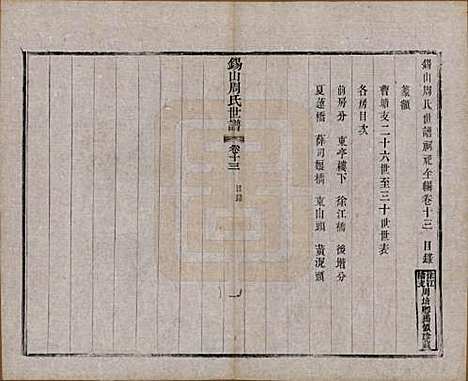 錫山周氏世譜祠祀全編卷十三 目錄
篆額
曹塘支二十六世至三十世世表
各房目次
前房分 東亭樓下 徐江橋 後增分
夏蓮橋 薛司堰橋 東山頭 黃泥頭
錫山周氏世譜
卷十三
目錄
一